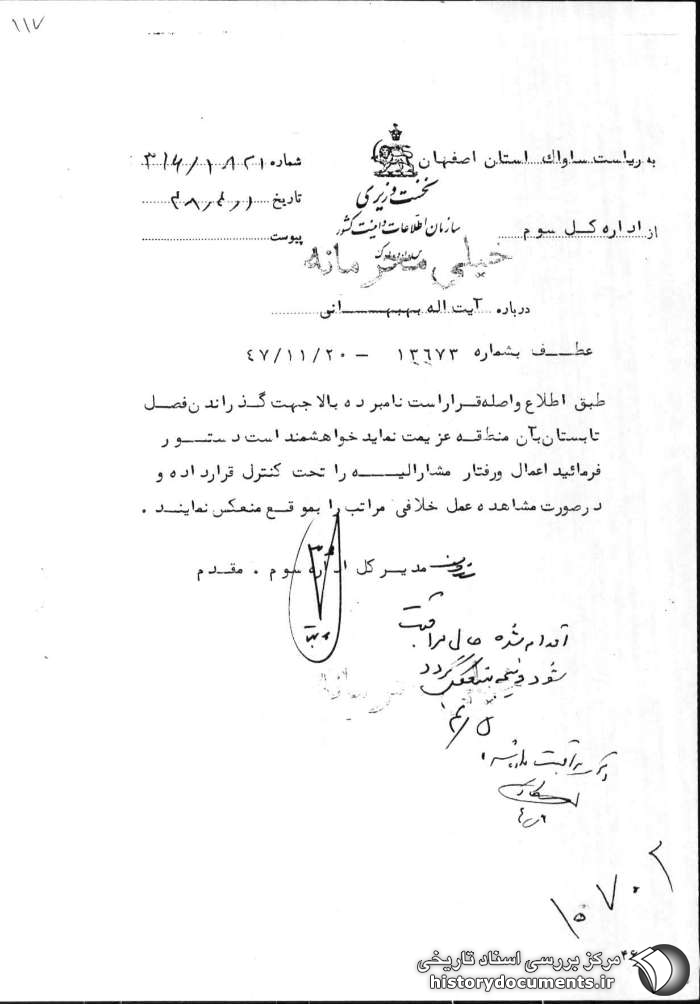 ۱۱۷
به ریاست ساواک استان اصفهان
شماره ۳۱۶/۱۰۸۲۱
نخست وزیری
تاریخ ۴۸/۴/۱
سازمان اطلاعات و امنیت کشور
از اداره کل سوم
پیوست
خیلی محرمانه
درباره آیت اله بهبهانی
عطف بشماره ۱۳۶۷۳ - ۴۷/۱۱/۲۰
طبق اطلاع واصله قرار است نامبرده بالا جهت گذراندن فصل
تابستان بآن منطقه عزیمت نماید خواهشمند است دستور
فرمائید اعمال ورفتار مشارالیه را تحت کنترل قرار داده و
در صورت مشاهده عمل خلافی مراتب را بموقع منعکس نمایند.
مدیر کل اداره سوم. مقدم
اقدام شده حال مراقبت
شود و نتیجه منعکس گردد
۱۵۷۰۲
۴۶
مرکز بررسی اسناد تاریخی
historydocuments.ir